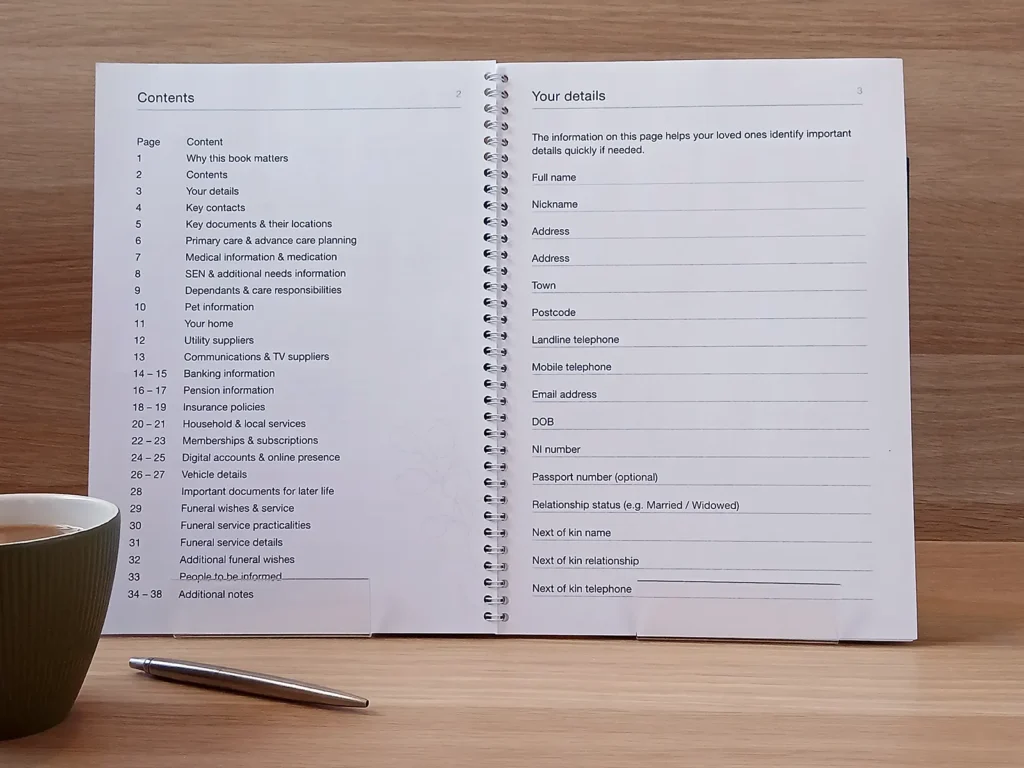 Contents 2
Page Content
1 Why this book matters
2 Contents
3 Your details
4 Key contacts
5 Key documents & their locations
6 Primary care & advance care planning
7 Medical information & medication
8 SEN & additional needs information
9 Dependants & care responsibilities
10 Pet information
11 Your home
12 Utility suppliers
13 Communications & TV suppliers
14 – 15 Banking information
16 – 17 Pension information
18 – 19 Insurance policies
20 – 21 Household & local services
22 – 23 Memberships & subscriptions
24 – 25 Digital accounts & online presence
26 – 27 Vehicle details
28 Important documents for later life
29 Funeral wishes & service
30 Funeral service practicalities
31 Funeral service details
32 Additional funeral wishes
33 People to be informed
34 – 38 Additional notes
Your details 3
The information on this page helps your loved ones identify important
details quickly if needed.
Full name
Nickname
Address
Address
Town
Postcode
Landline telephone
Mobile telephone
Email address
DOB
NI number
Passport number (optional)
Relationship status (e.g. Married / Widowed)
Next of kin name
Next of kin relationship
Next of kin telephone